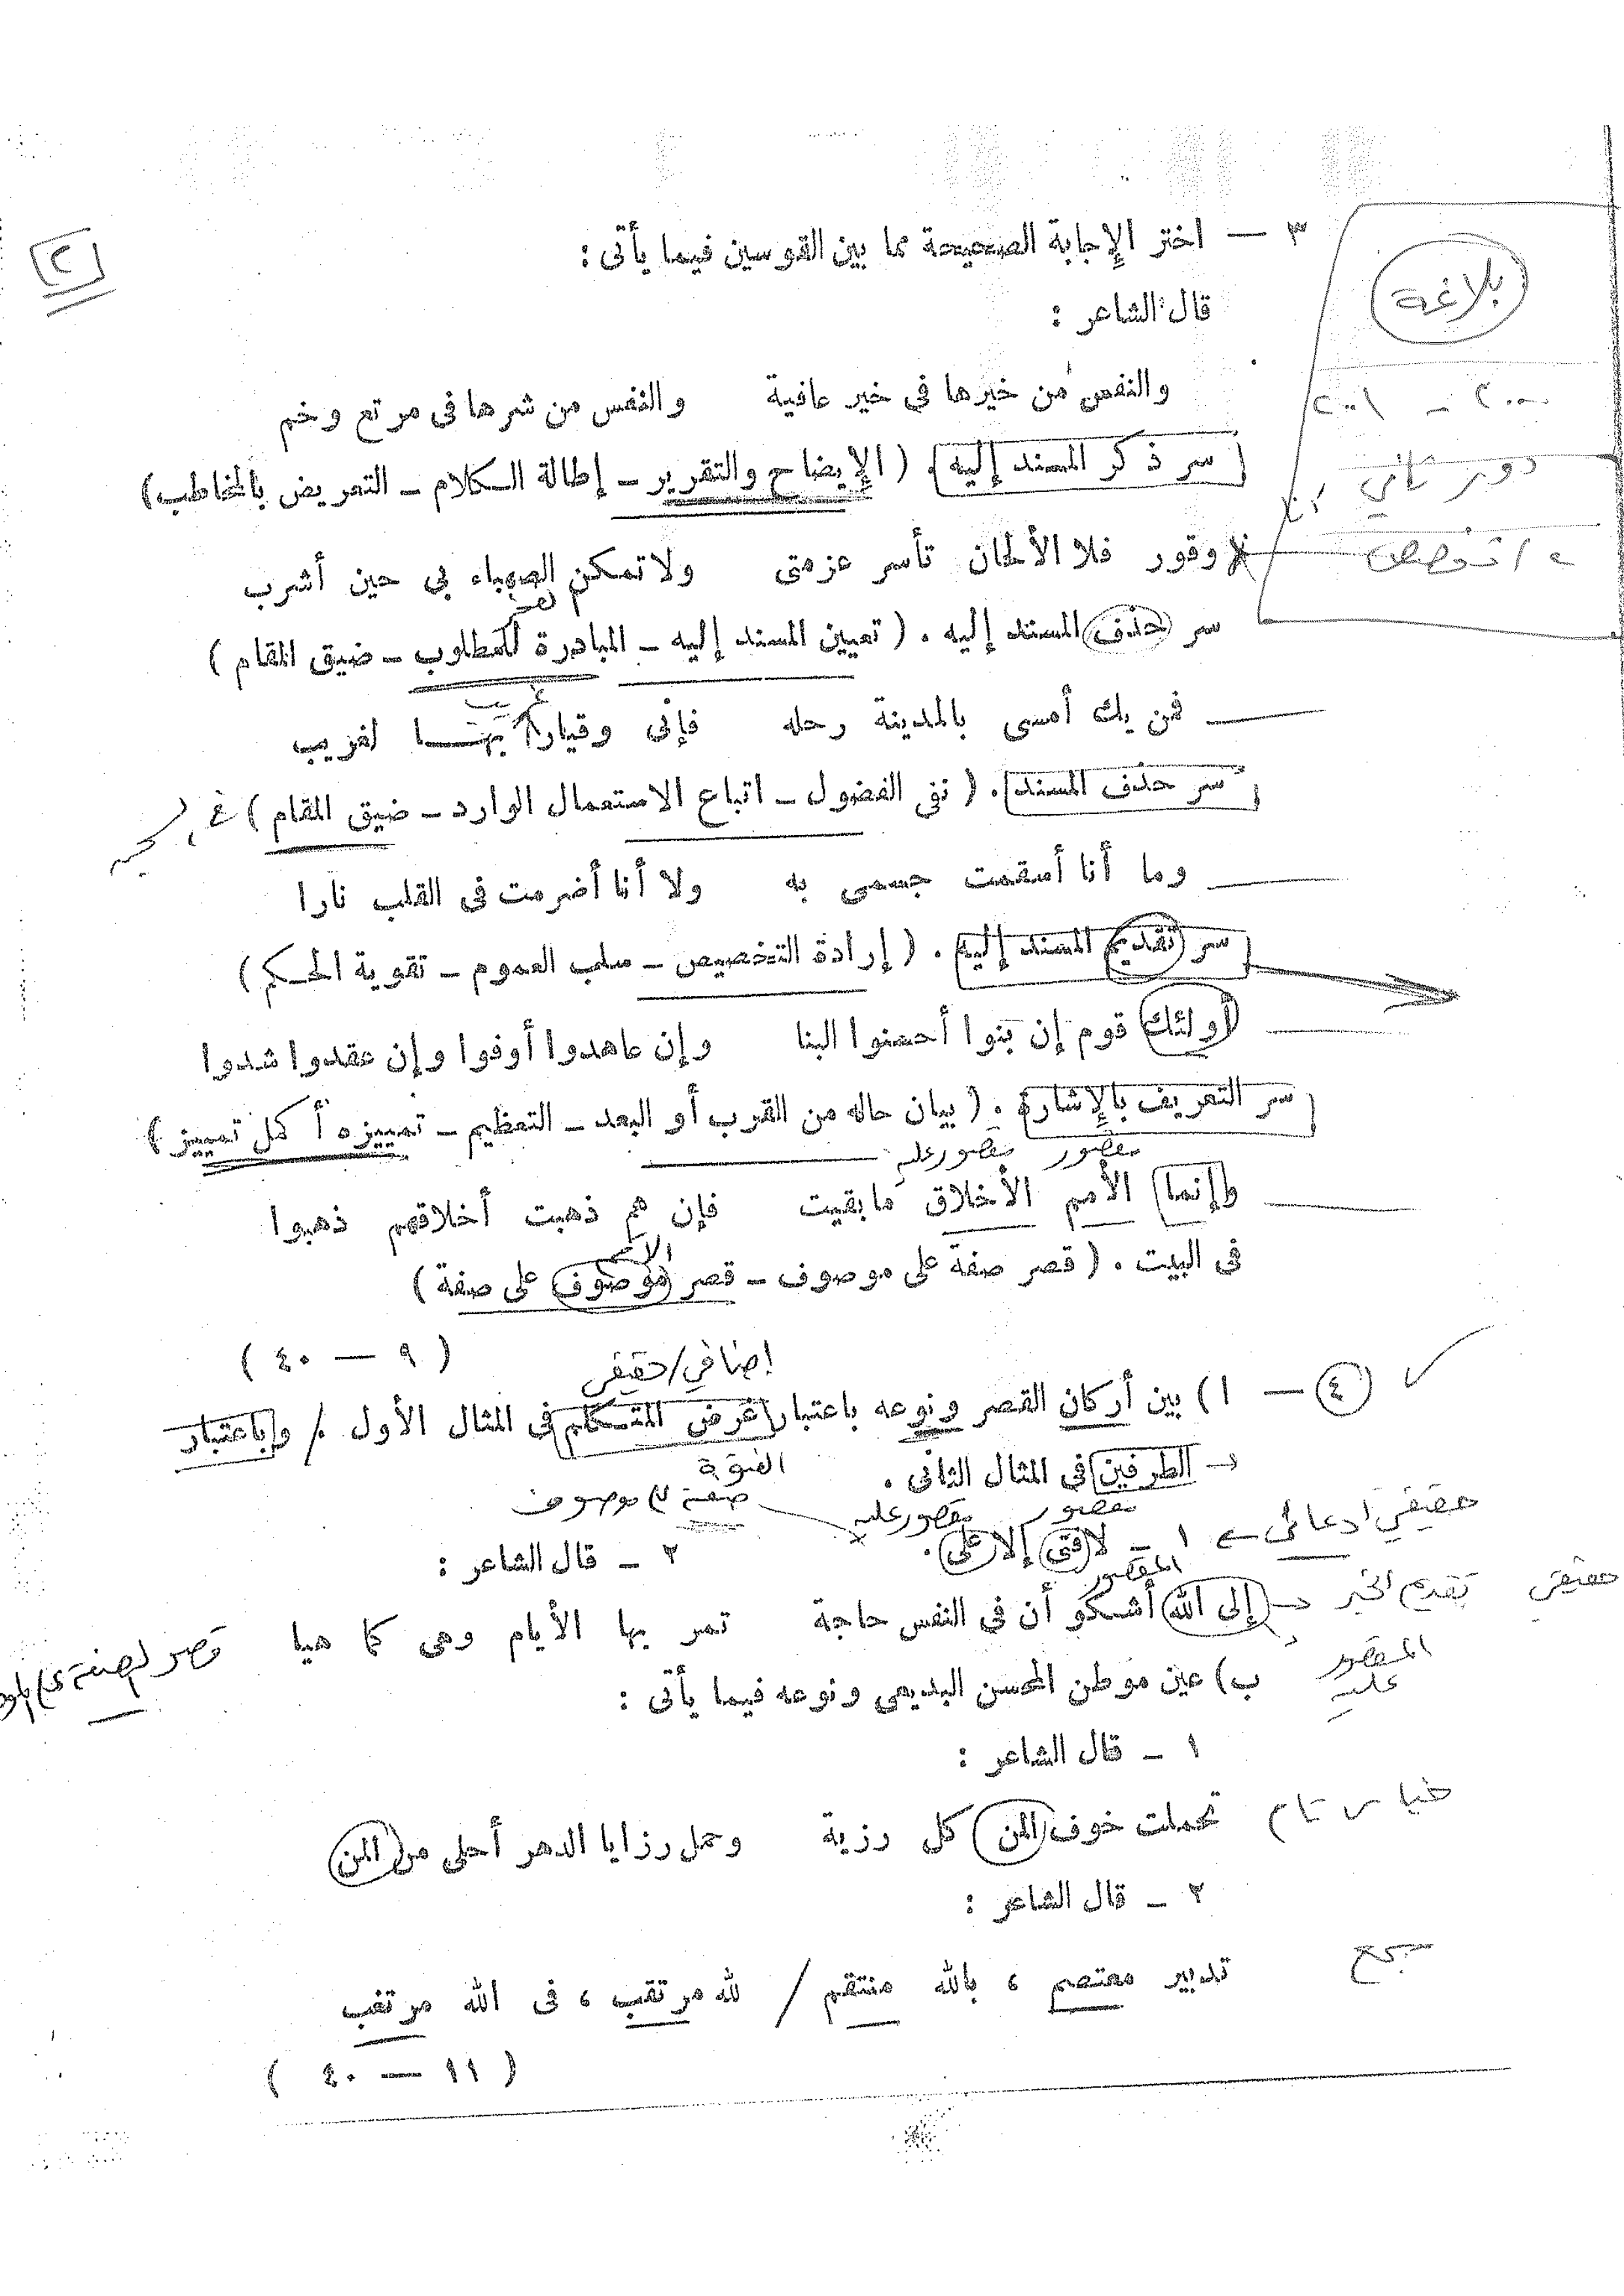 ٢
بلاغة
٢٠٠٠ - ٢٠٠١
دور ثاني
٣ — اختر الإجابة الصحيحة مما بين القوسين فيما يأتى :
قال الشاعر :
والنفس من خيرها في خير عافية والنفس من شرها فى مرتع وخم
سر ذكر المسند إليه . ( الإيضاح والتقرير - إطالة الكلام - التعريض بالمخاطب )
وقور فلا الألحان تأسر عزمتى ولا تمكن الصهباء بي حين أشرب
سر حذف المسند إليه . ( تعيين المسند إليه - المبادرة للمطلوب - ضيق المقام )
غريب
فمن يك أمسى بالمدينة رحله فإنى وقيارا بها لغريب
سر حذف المسند . ( نفى الفضول - اتباع الاستعمال الوارد - ضيق المقام )
وما أنا أسقمت جسمى به ولا أنا أضرمت فى القلب نارا
سر تقديم المسند إليه . ( إرادة التخصيص - سلب العموم - تقوية الحكم )
أولئك قوم إن بنوا أحسنوا البنا وإن عاهدوا أوفوا وإن عقدوا شدوا
سر التعريف بالإشارة . ( بيان حاله من القرب أو البعد - التعظيم - تمييزه أكمل تمييز )
مقصور مقصور عليه
وإنما الأمم الأخلاق ما بقيت فإن هم ذهبت أخلاقهم ذهبوا
فى البيت . ( قصر صفة على موصوف - قصر موصوف على صفة )
( ٩ — ٤٠ )
إضافي / حقيقي
٤ — ا ) بين أركان القصر ونوعه باعتبار غرض المتكلم فى المثال الأول . / وباعتبار
الطرفين فى المثال الثانى .
صفة على موصوف
مقصور مقصور عليه
حقيقي ادعائى ١ - لا فتى إلا على .
٢ - قال الشاعر :
المقصور
حقيقي تقديم الخبر إلى الله أشكو أن في النفس حاجة تمر بها الأيام وهى كما هيا
المقصور عليه
ب) عين موطن المحسن البديعى ونوعه فيما يأتى :
١ - قال الشاعر :
جناس تام تحملت خوف المن كل رزية وحمل رزايا الدهر أحلى من المن
٢ - قال الشاعر :
سجع تدبير معتصم ، بالله منتقم / لله مرتقب ، فى الله مرتغب
( ١١ — ٤٠ )